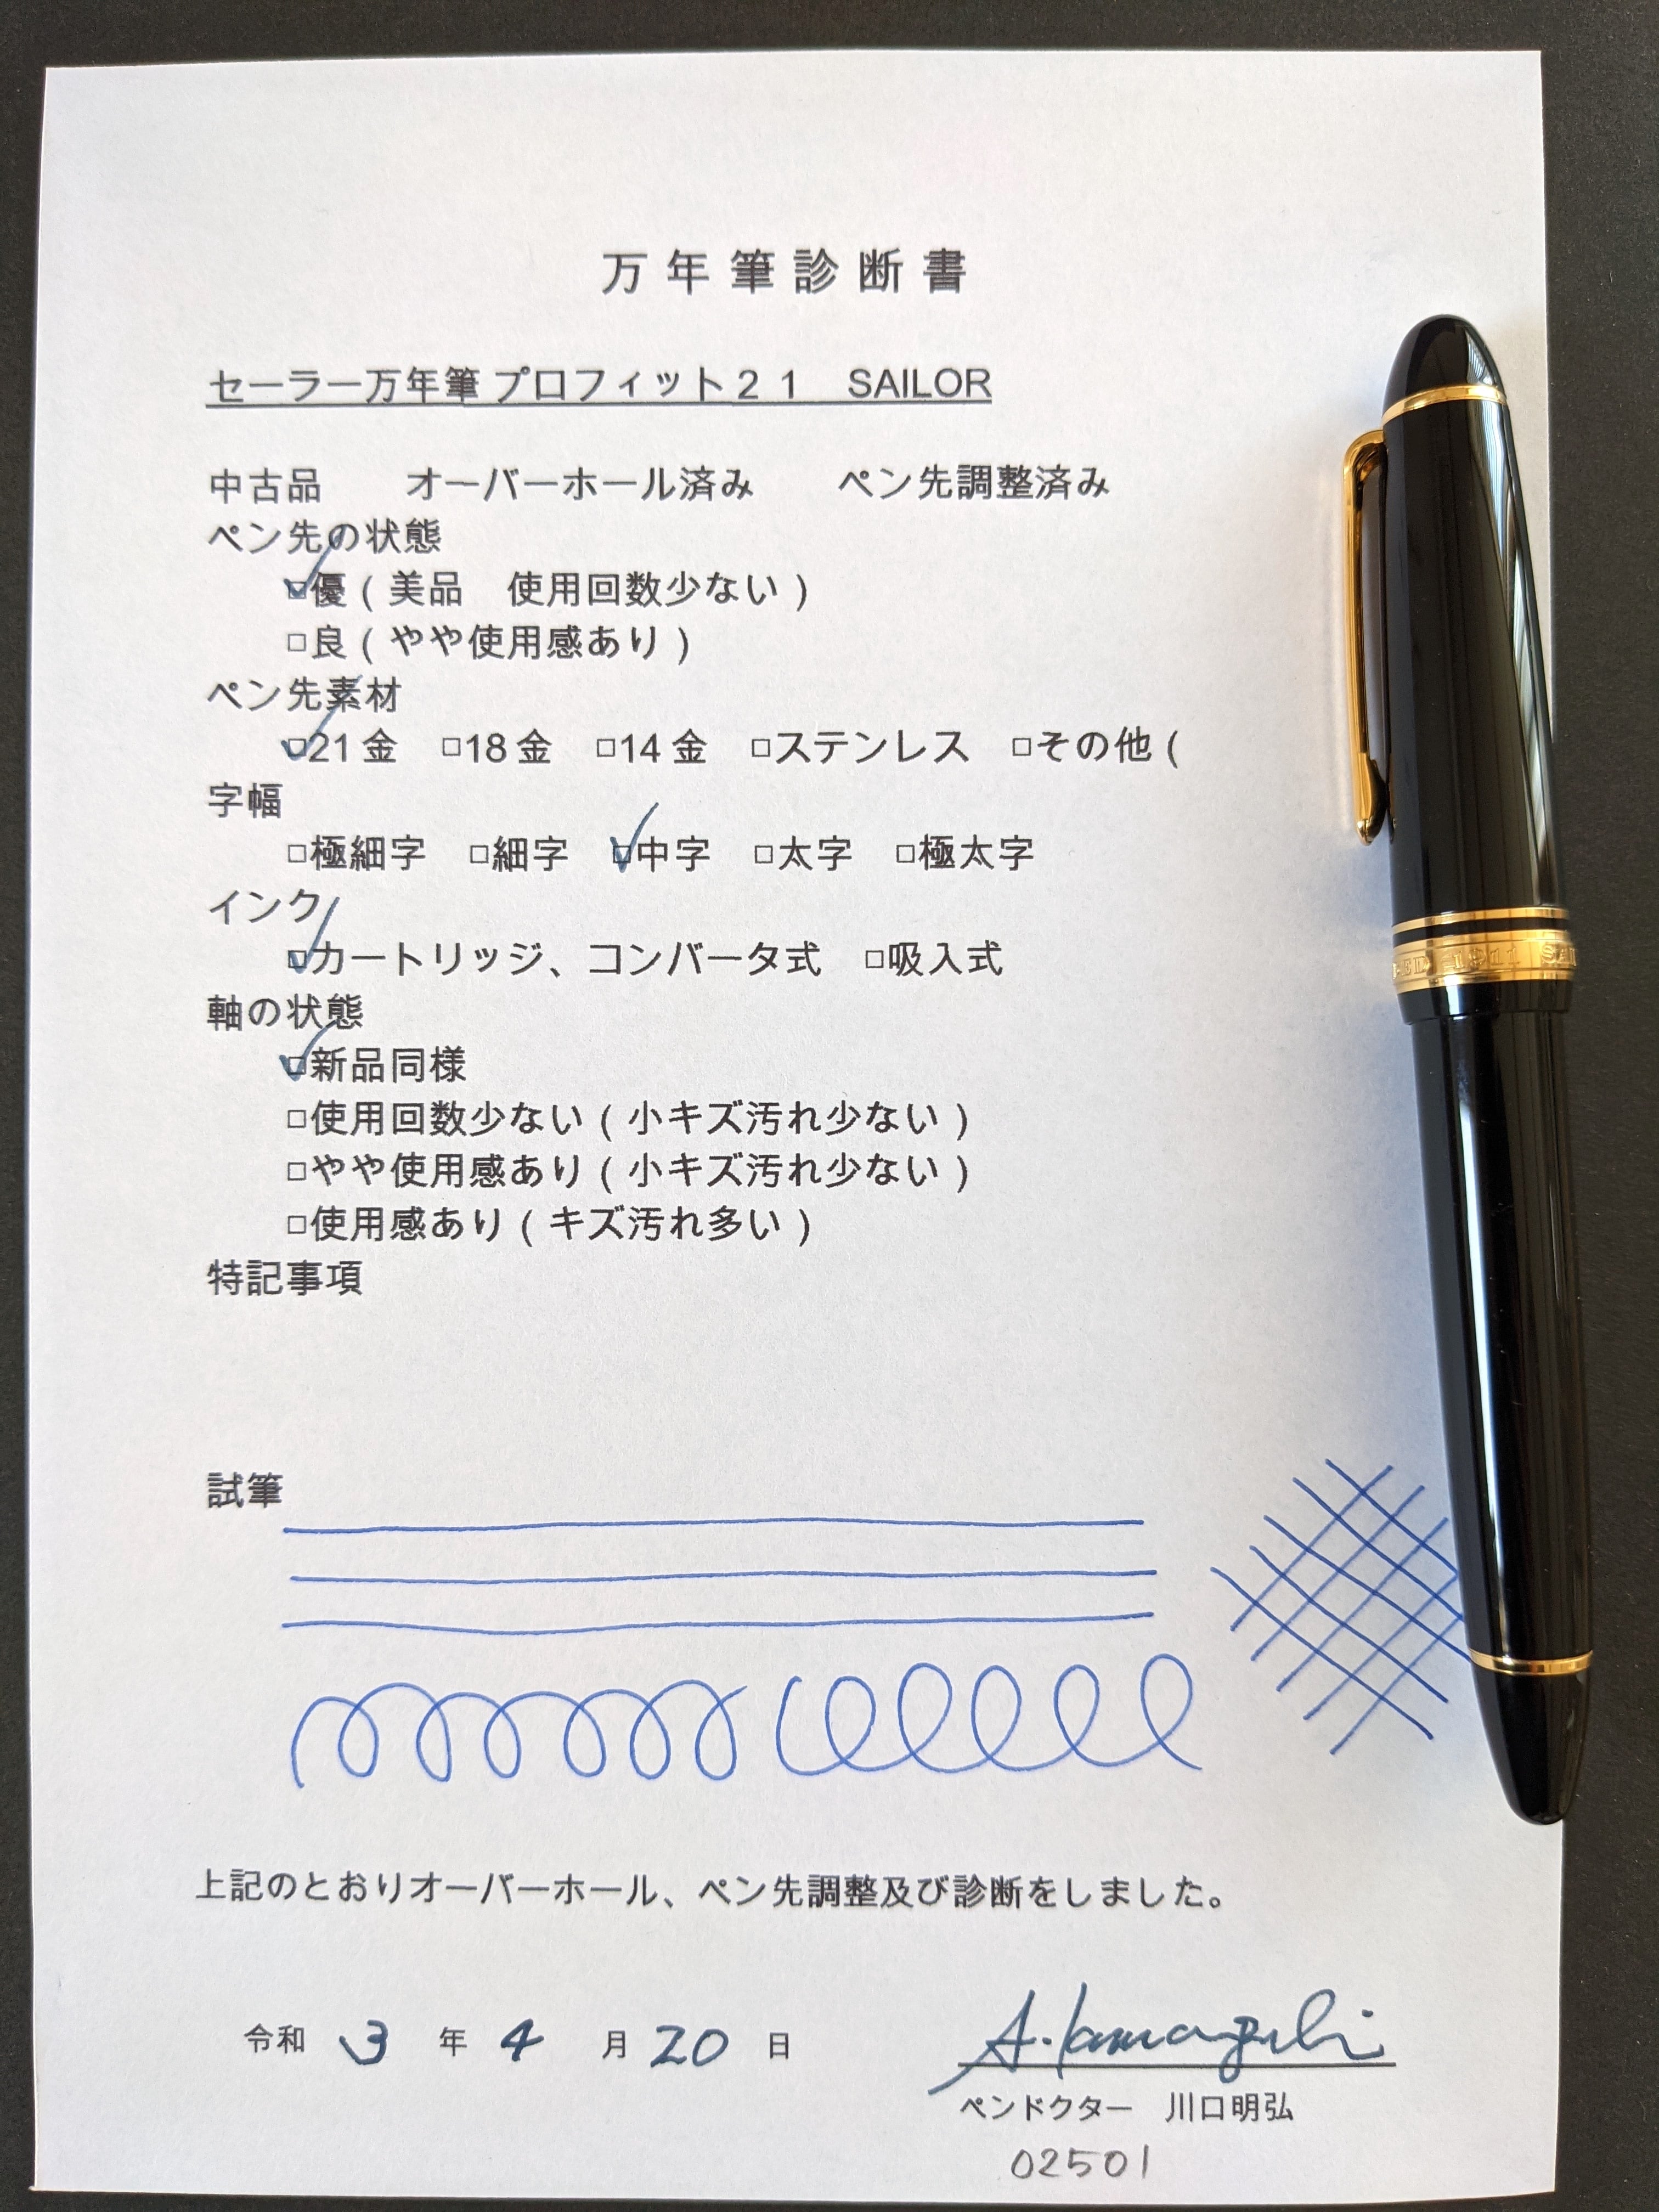 万年筆診断書
セーラー万年筆 プロフィット２１　SAILOR
中古品　　オーバーホール済み　　ペン先調整済み
ペン先の状態
☑優（美品　使用回数少ない）
□良（やや使用感あり）
ペン先素材
☑21金　□18金　□14金　□ステンレス　□その他（
字幅
□極細字　□細字　☑中字　□太字　□極太字
インク
☑カートリッジ、コンバータ式　□吸入式
軸の状態
☑新品同様
□使用回数少ない（小キズ汚れ少ない）
□やや使用感あり（小キズ汚れ少ない）
□使用感あり（キズ汚れ多い）
特記事項
試筆
上記のとおりオーバーホール、ペン先調整及び診断をしました。
令和 3 年 4 月 20 日
A. Kawaguchi
ペンドクター　川口明弘
02501